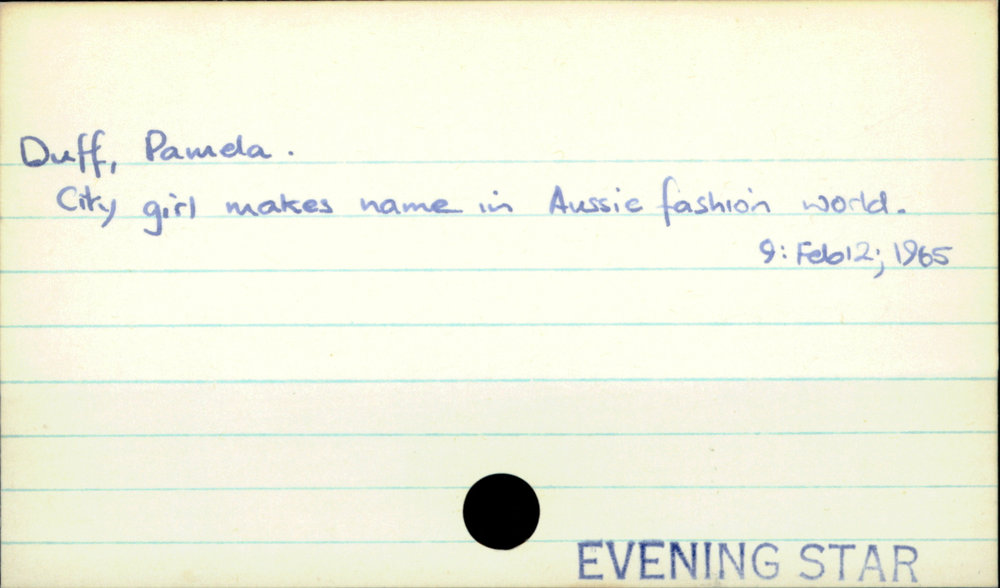 Duff, Pamela.
City girl makes name in Aussie fashion world.
9: Feb 12; 1965
EVENING STAR